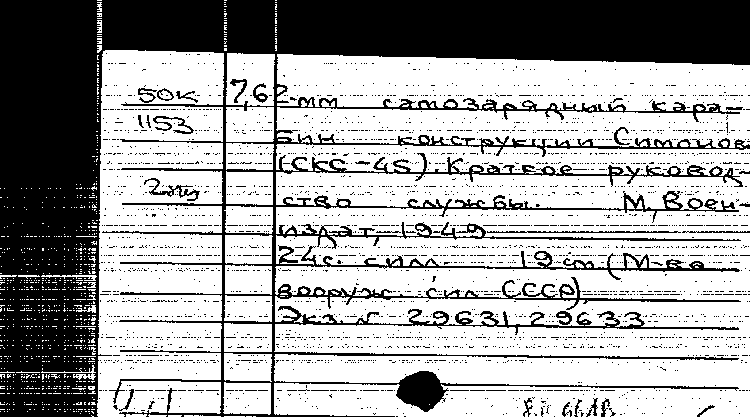 50к 7,62-мм самозарядный кара-
1153 бин конструкции Симонова
(СКС-45). Краткое руковод-
2 экз ство службы. М, Воен-
издат, 1949
24с. с илл. 19 см. (М-во
вооруж. сил СССР)
Экз. № 29631, 29633